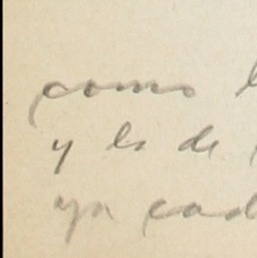 como
y es de
ya cad